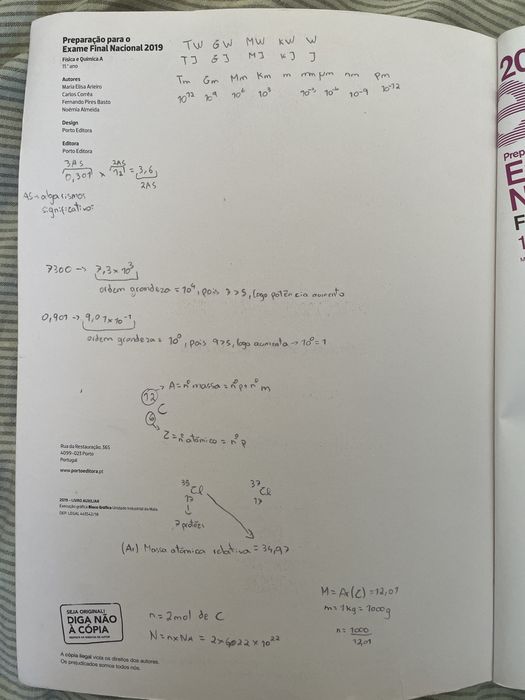 Preparação para o
Exame Final Nacional 2019
Física e Química A
11.º ano
Autores
Maria Elisa Arieiro
Carlos Corrêa
Fernando Pires Basto
Noémia Almeida
Design
Porto Editora
Editora
Porto Editora
TW GW MW KW W
TJ GJ MJ KJ J
Tm Gm Mm Km m mm µm nm pm
10¹² 10⁹ 10⁶ 10³ 10⁻³ 10⁻⁶ 10⁻⁹ 10⁻¹²
3AS 2AS
0,301 × 12 = 3,6
2AS
AS→algarismos
significativos
7300 → 7,3×10³
ordem grandeza = 10⁴, pois 7>5, logo potência aumenta
0,901 → 9,01×10⁻¹
ordem grandeza = 10⁰, pois 9>5, logo aumenta → 10⁰=1
12 → A = nº massa = nºp + nº m
C
6
Z = nº atómico = nºp
Rua da Restauração, 365
4099-023 Porto
Portugal
www.portoeditora.pt
35 Cl 37 Cl
17 17
↓
7 protões
2019 - LIVRO AUXILIAR
Execução gráfica Bloco Gráfico Unidade Industrial da Maia
DEP. LEGAL
(Ar) Massa atómica relativa = 34,97
SEJA ORIGINAL!
DIGA NÃO
À CÓPIA
RESPEITE OS DIREITOS DE AUTOR
n = 2mol de C
N = n×NA = 2×6022×10²²
M = Ar(C) = 12,01
m = 1kg = 1000g
n = 1000
12,01
A cópia ilegal viola os direitos dos autores.
Os prejudicados somos todos nós.
20
Prep
E
N
F
1